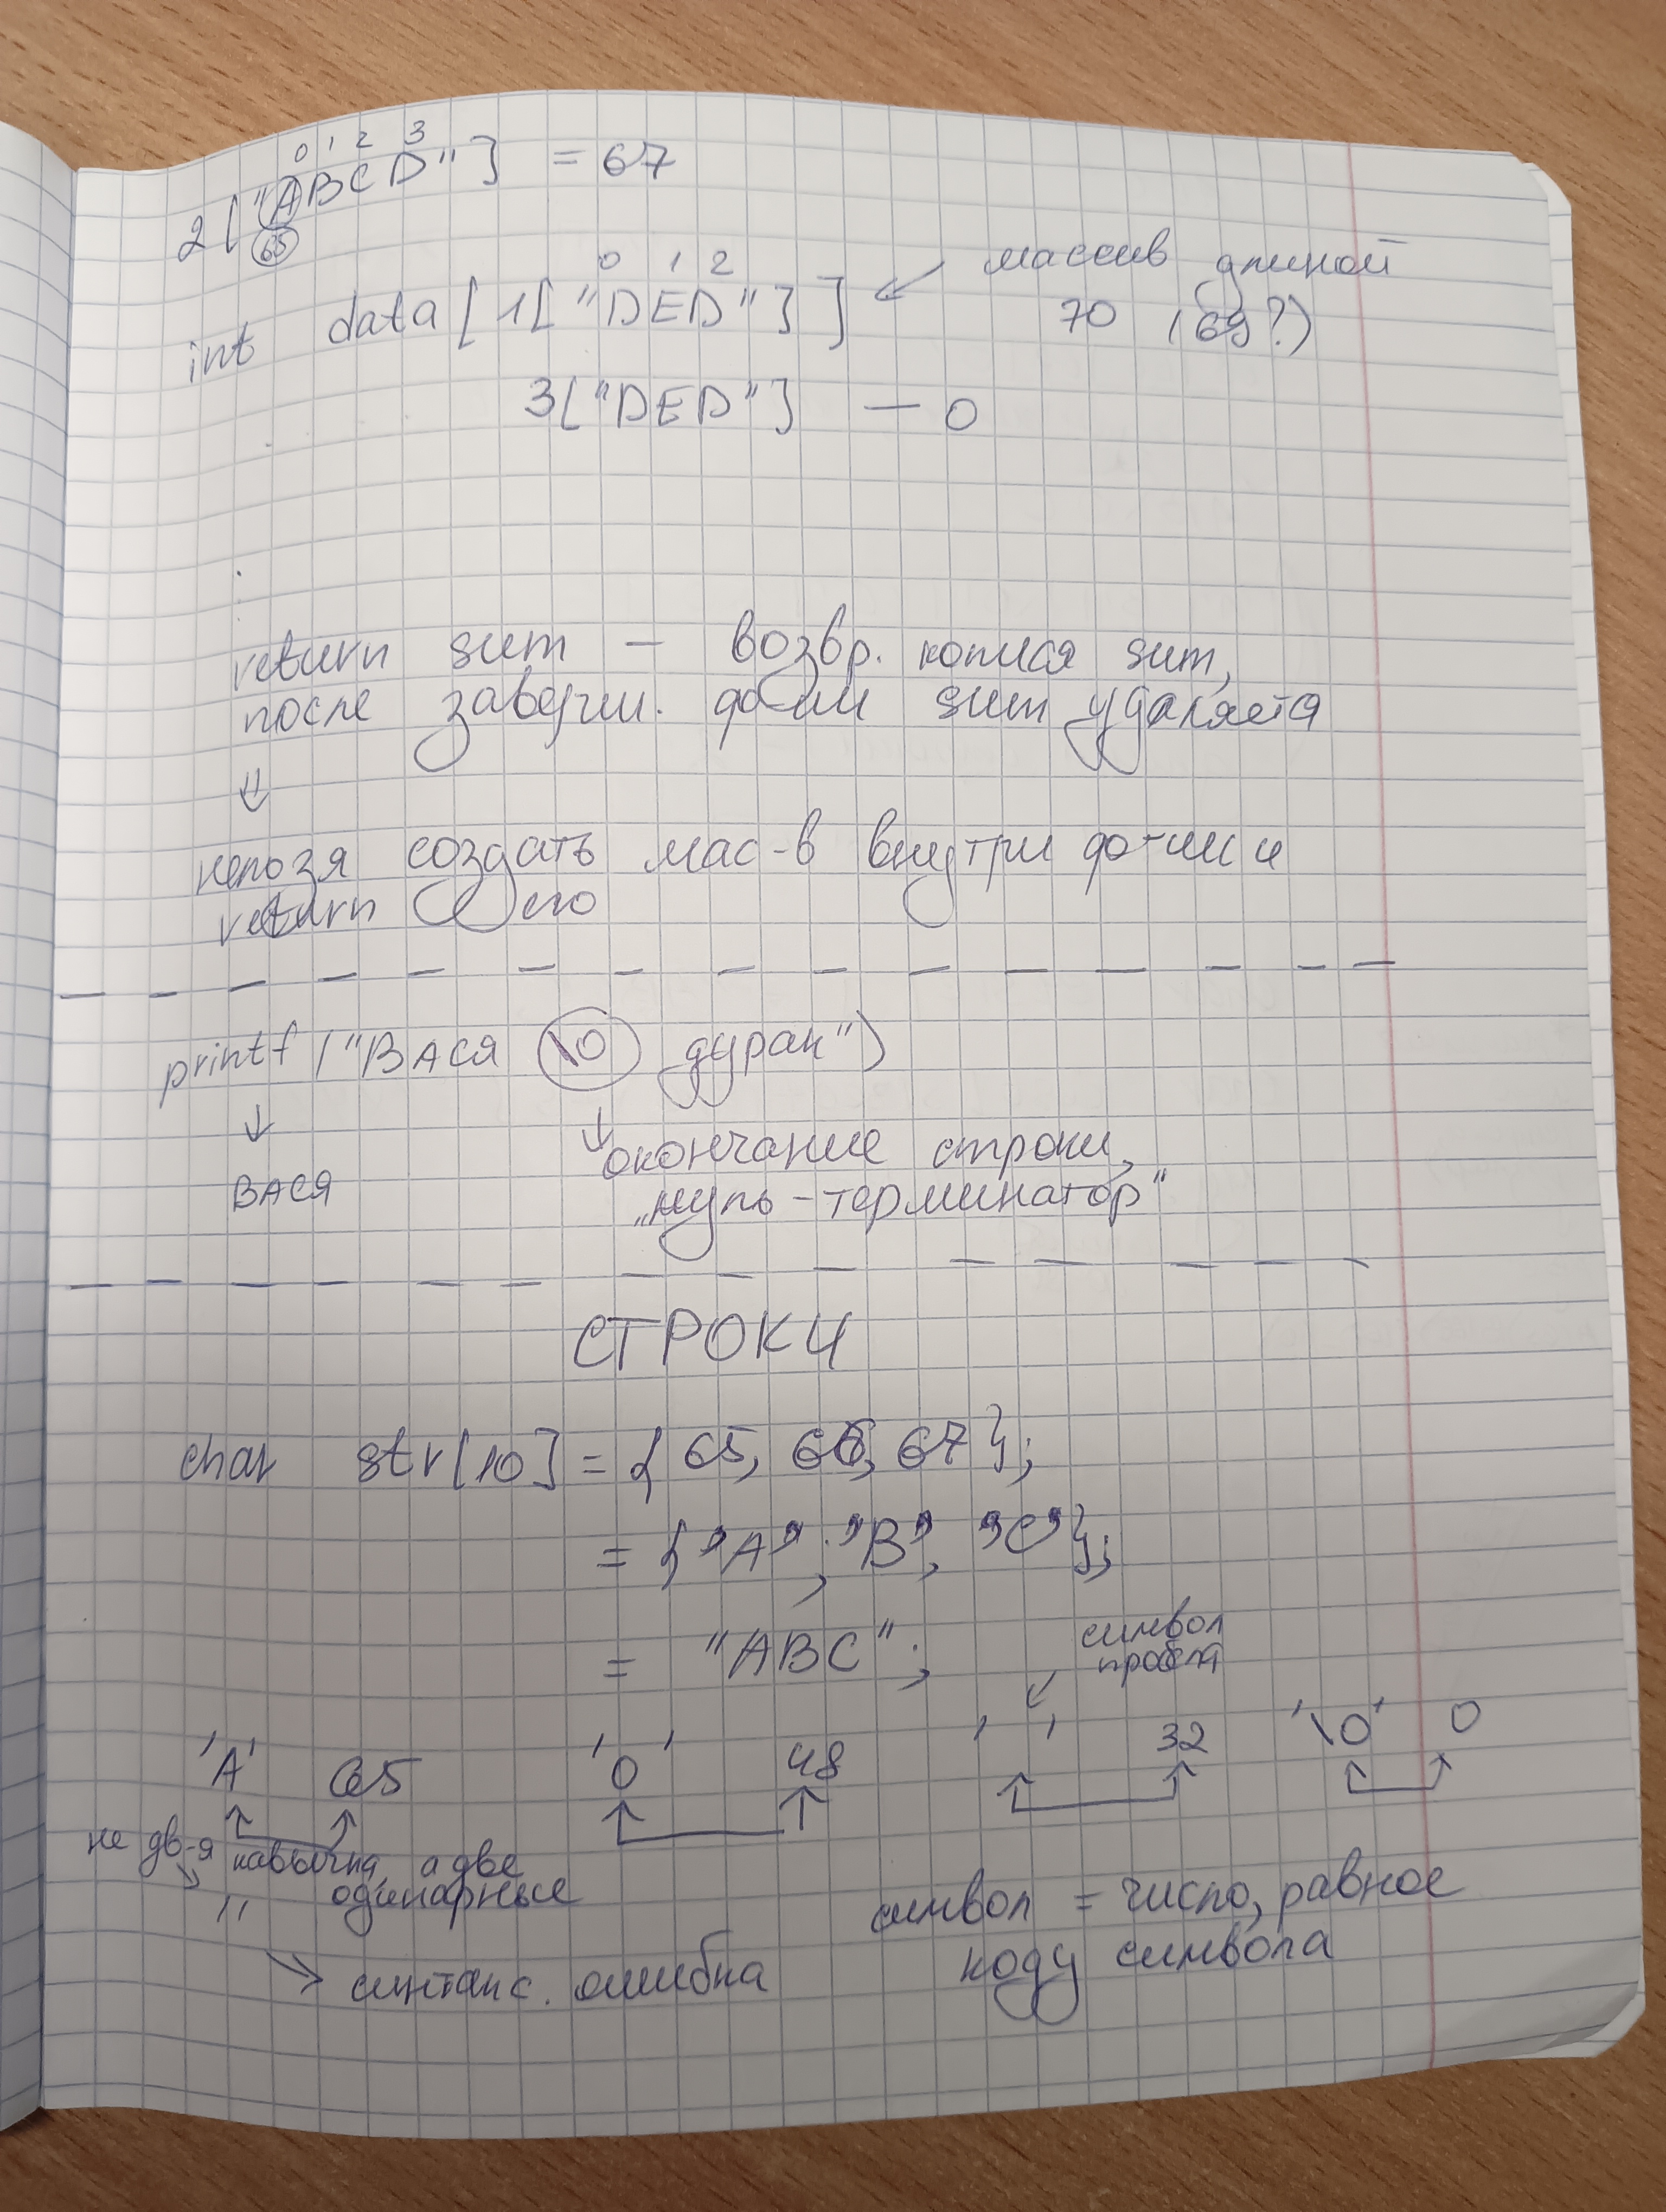 0 1 2 3
2["ABCD"] = 67
65
0 1 2
int data[1["DED"]] ← массив длиной
70 (69?)
3["DED"] — 0
return sum — возвр. копися sum,
после заверш. ф-ции sum удаляется
⇓
нельзя создать мас-в внутри ф-ции и
return его
printf ("ВАСЯ \0 дурак")
↓ ↓
ВАСЯ
окончание строки,
„нуль-терминатор"
СТРОКИ
char str[10] = { 65, 66, 67 };
= { 'A', 'B', 'C' };
= "ABC";
символ
пробела
'A' 65 '0' 48 ' ' 32 '\0' 0
не дв-я кавычка, а две
одинарные
''
→ синтакс. ошибка
символ = число, равное
коду символа